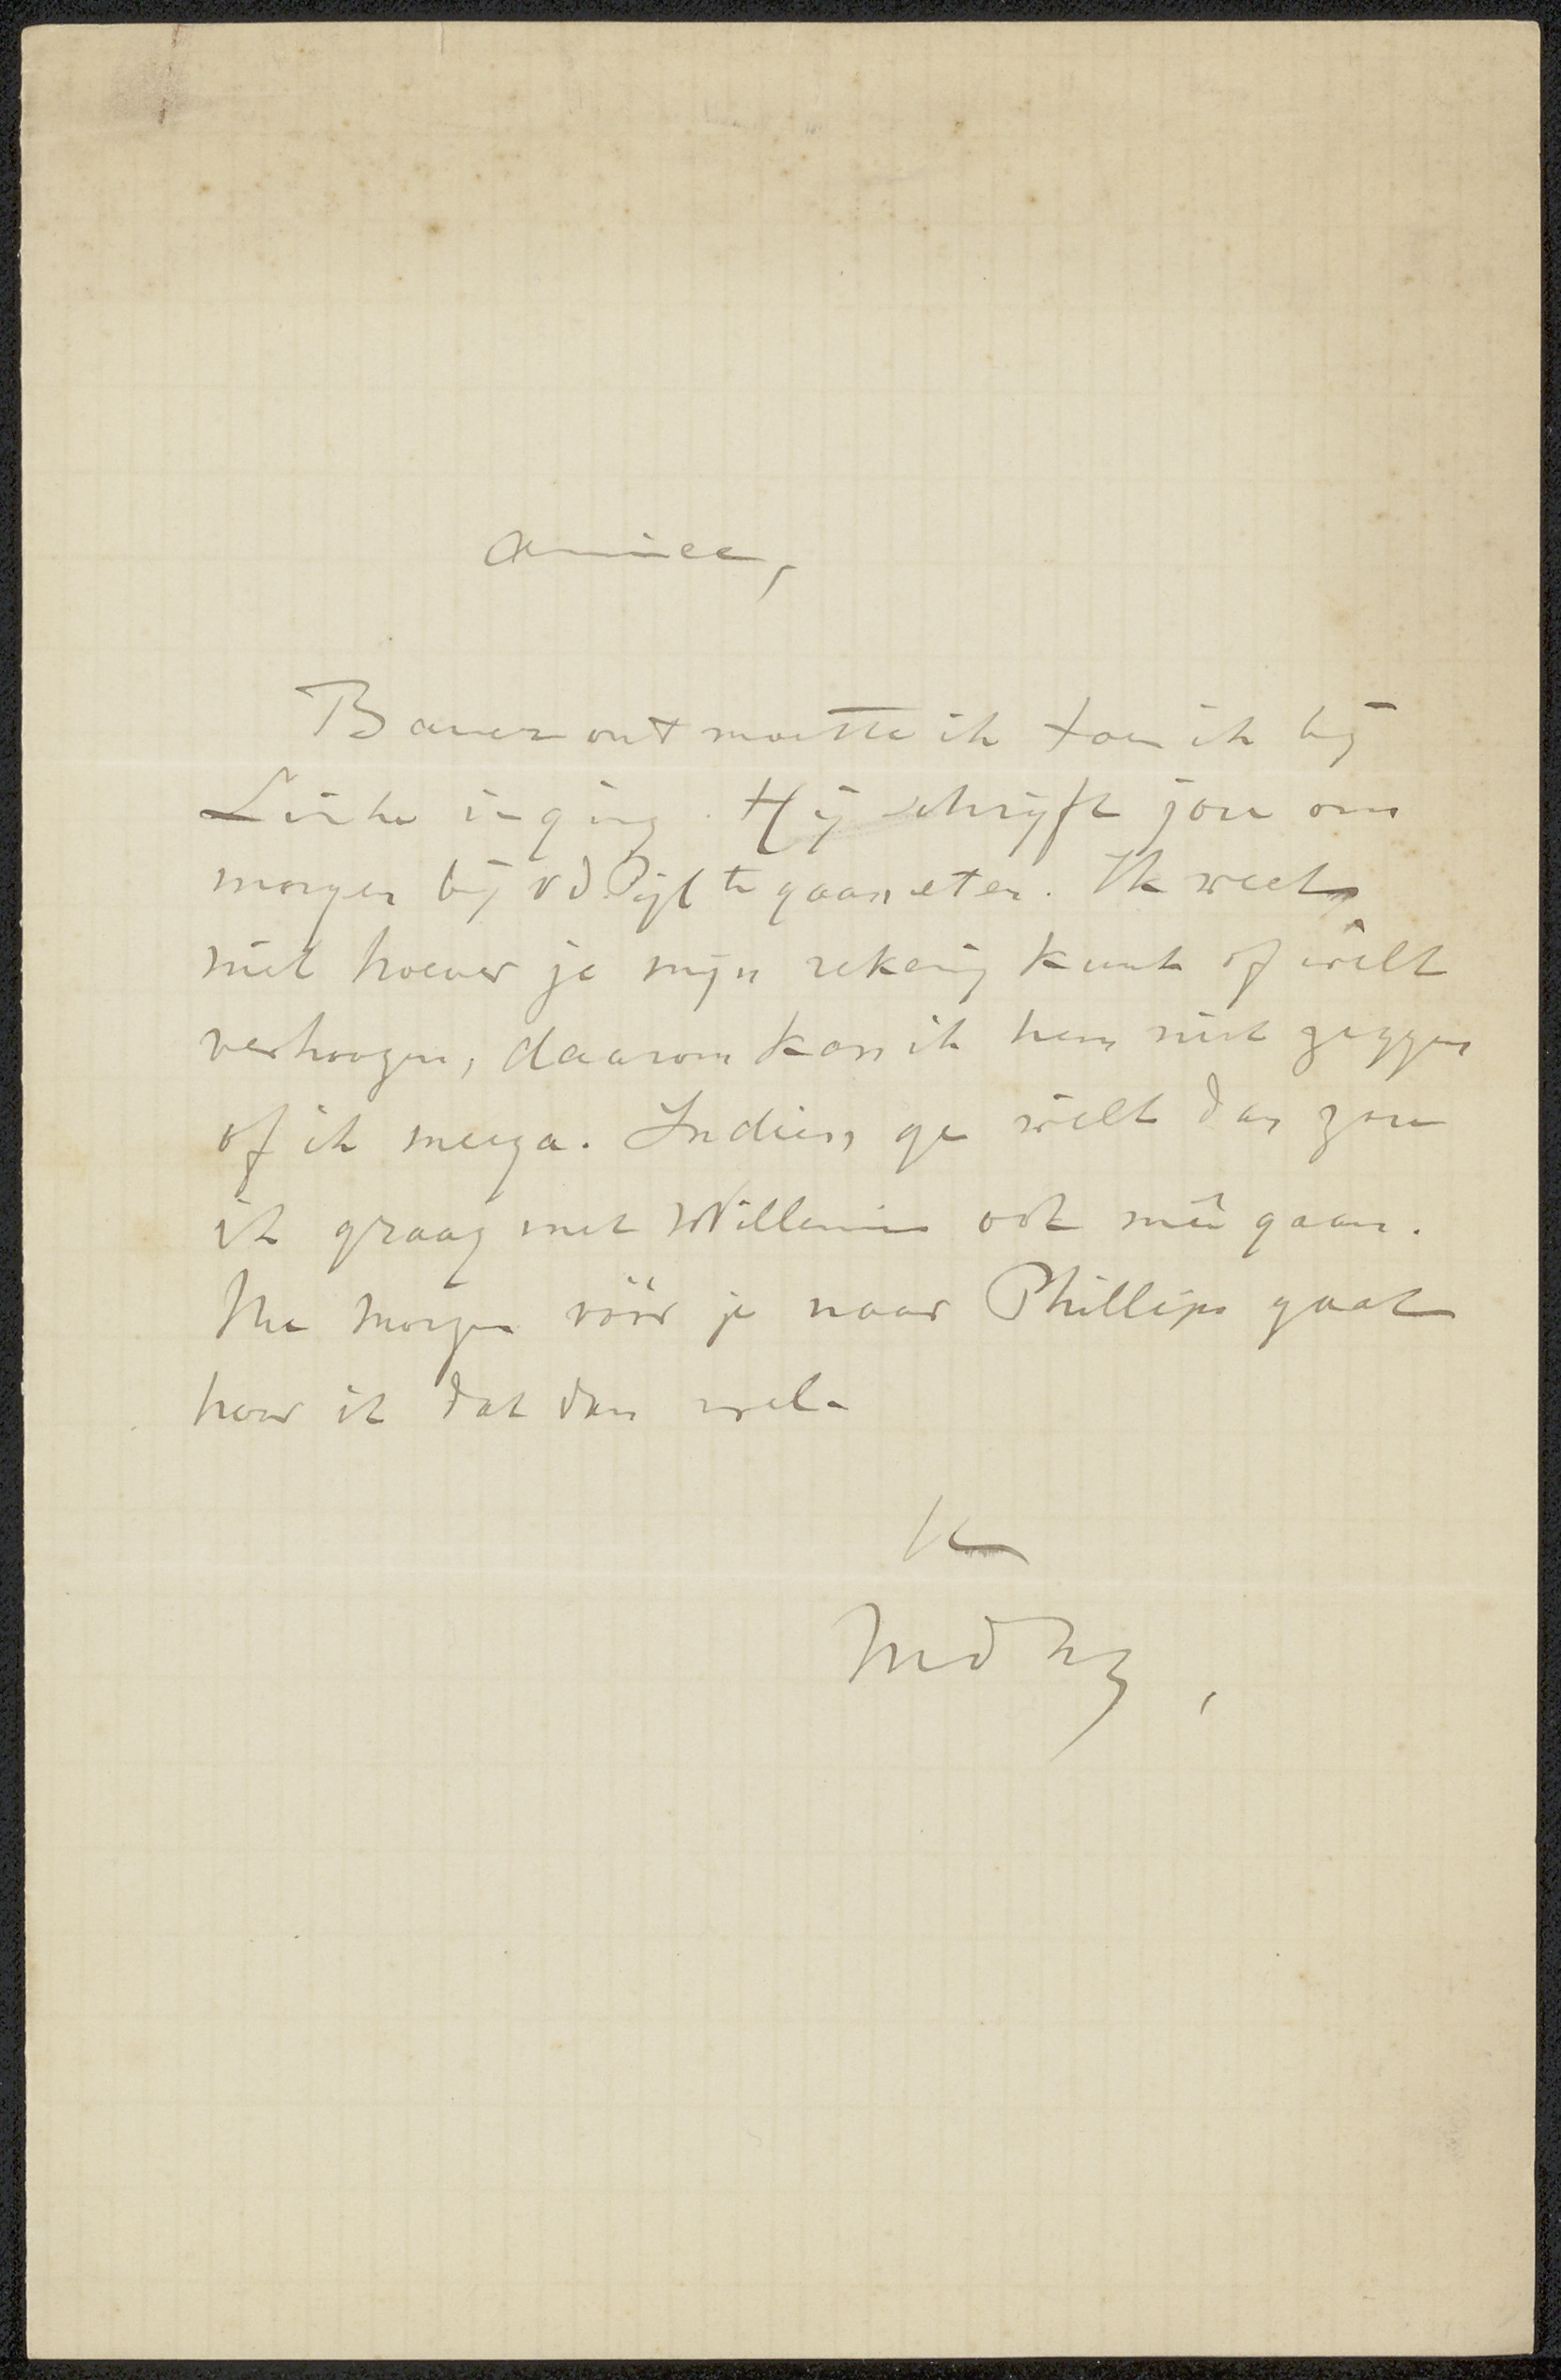 Amice,
Bauer ontmoette ik toen ik bij
Linke inging. Hij schrijft jou om
morgen bij vd Pijl te gaan eten. Ik weet
niet hoever je mijn rekenig kunt of wilt
verhoogen, daarom kan ik hem niet zeggen
of ik meega. Indien ge wilt dan zou
ik graag met Willemien ook mêe gaan.
Me morgen vóór je naar Phillips gaat
hoor ik dat dan wel.